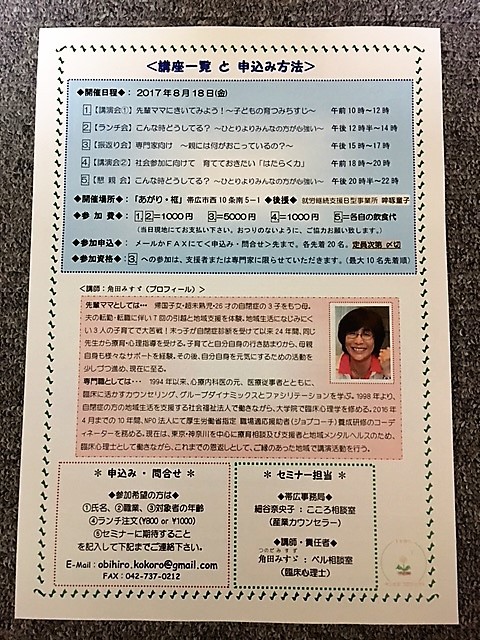 ＜講座一覧 と 申込み方法＞
◆開催日程◆： 2017年8月18日(金)
1【講演会①】先輩ママにきいてみよう！～子どもの育つみちすじ～ 午前10時～12時
2【ランチ会】こんな時どうしてる？ ～ひとりよりみんなの方が心強い～ 午後12時半～14時
3【振返り会】専門家向け ～親には何がおこっているの？～ 午後15時～17時
4【講演会②】社会参加に向けて 育てておきたい「はたらく力」 午前18時～20時
5【懇 親 会】こんな時どうしてる？ ～ひとりよりみんなの方が心強い～ 午後20時半～22時
◆開催場所◆：「あがり・框」帯広市西10条南5－1 ◆後援◆ 就労継続支援B型事業所
◆参 加 費◆： 12＝1000円 3＝5000円 4＝1000円 5＝各自の飲食代
（当日現地にてお支払い下さい。おつりのないように、ご協力お願い致します。）
◆参加申込◆： メールかFAXにて＜申込み・問合せ＞先まで。各先着20名。定員次第〆切
◆参加資格◆： 3への参加は、支援者または専門家に限らせていただきます。（最大10名先着順）
＜講師：角田みすゞ（プロフィール）＞
先輩ママとしては… 帰国子女・超未熟児・26才の自閉症の3子をもつ母。
夫の転勤・転職に伴い7回の引越と地域支援を体験。地域生活になじみにく
い3人の子育てで大苦戦！末っ子が自閉症診断を受けて以来24年間、同じ
先生から療育・心理指導を受ける。子育てと自分自身の行き詰まりから、母親
自身も様々なサポートを経験。その後、自分自身を元気にするための活動を
少しづつ進め、現在に至る。
専門職としては… 1994年以来、心療内科医の元、医療従事者とともに、
臨床に活かすカウンセリング、グループダイナミックとファシリテーションを学ぶ。1998年より、
自閉症の方の地域生活を支援する社会福祉法人で働きながら、大学院で臨床心理学を修める。2016年
4月までの10年間、NPO法人にて厚生労働省指定 職場適応援助者（ジョブコーチ）養成研修のコー
ディネーターを務める。現在は、東京・神奈川を中心に療育相談及び支援者と地域メンタルヘルスのため、
臨床心理士として働きながら、これまでの恩返しとして、ご縁のあった地域で講演活動を行う。
＊ 申込み・問合せ ＊
◆参加希望の方は◆
①氏名、②職業、③対象者の年齢
④ランチ注文(¥800 or ¥1000)
⑤セミナーに期待すること
を記入して下記までご連絡下さい。
E-Mail：obihiro.kokoro@gmail.com
FAX：042-737-0212
＊ セミナー担当 ＊
◆帯広事務局◆
細谷奈央子：こころ相談室
（産業カウンセラー）
◆講師・責任者◆
つのだみすず
角田みすゞ：ベル相談室
（臨床心理士）